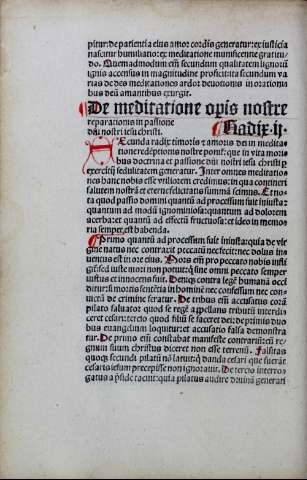 pitur: de patientia eius amor cordis generatur: ex iusticia
nascitur humiliatio: ex meditatione munificentie gratitu-
do. Quemadmodum em̄ secundum qualitatem lignorū
ignis accensus in magnitudine proficit: ita secundum va
rias de des meditationes ardor deuotionis in oration
bus deū amantibus exurgit.
De meditatione opis nostre
reparationis in passione
dn̄i nostri iesu christi. Radix. ij.
Secunda radix timoris & amoris dei in medita
tione redēptionis nostre ponit᷑: que in vita mori
bus doctrina et passione dn̄i nostri iesu christi p
exercitiū sedulitatem generatur. Inter omnes meditatio
nes hanc nobis esse vtiliorem credimus: in qua continet᷑
salutem nostrā et eterne felicitatis summā semita. Et no
ta quod passio domini quantū ad processum fuit iniusta:
quantum ad modū ignominiosa: quantum ad dolorem
acerba: et quantū ad effectū fructuosa: et ideo in memo
ria semper est habenda.
Primo quantū ad processum fuit iniusta: quia de vir
gine natus nec contraxit peccatū nec fecit: nec dolus in
uentus est in ore eius. Mors em̄ pro peccato nobis infli
git᷑: sed iuste mori non potuit: q̄ sine omni peccato semper
iustus et innocens fuit. Deniq3 contra legē humanā occi
ditur: si mortis sentētia in hominē nec confessum nec con
uictū de crimine feratur. De tribus em̄ accusatus corā
pilato saluator: quod se regē appellans tributū interdi
ceret cesari: tercio quod filiū se faceret dei: de primis duo
bus euangelium loquitur: et accusatio falsa demonstra
tur. De primo em̄ constabat manifeste contrariū: cum re
gnum suum christus diceret non esse terrenū. Falsitas
quoq3 secundi pilatū nō latuit: q̄ danda cesari que fuerāt
cesaris iesum precepisse non ignorauit. De tercio interro
gatus a p̄side tacuit: quia pilatus audire diuinā generati